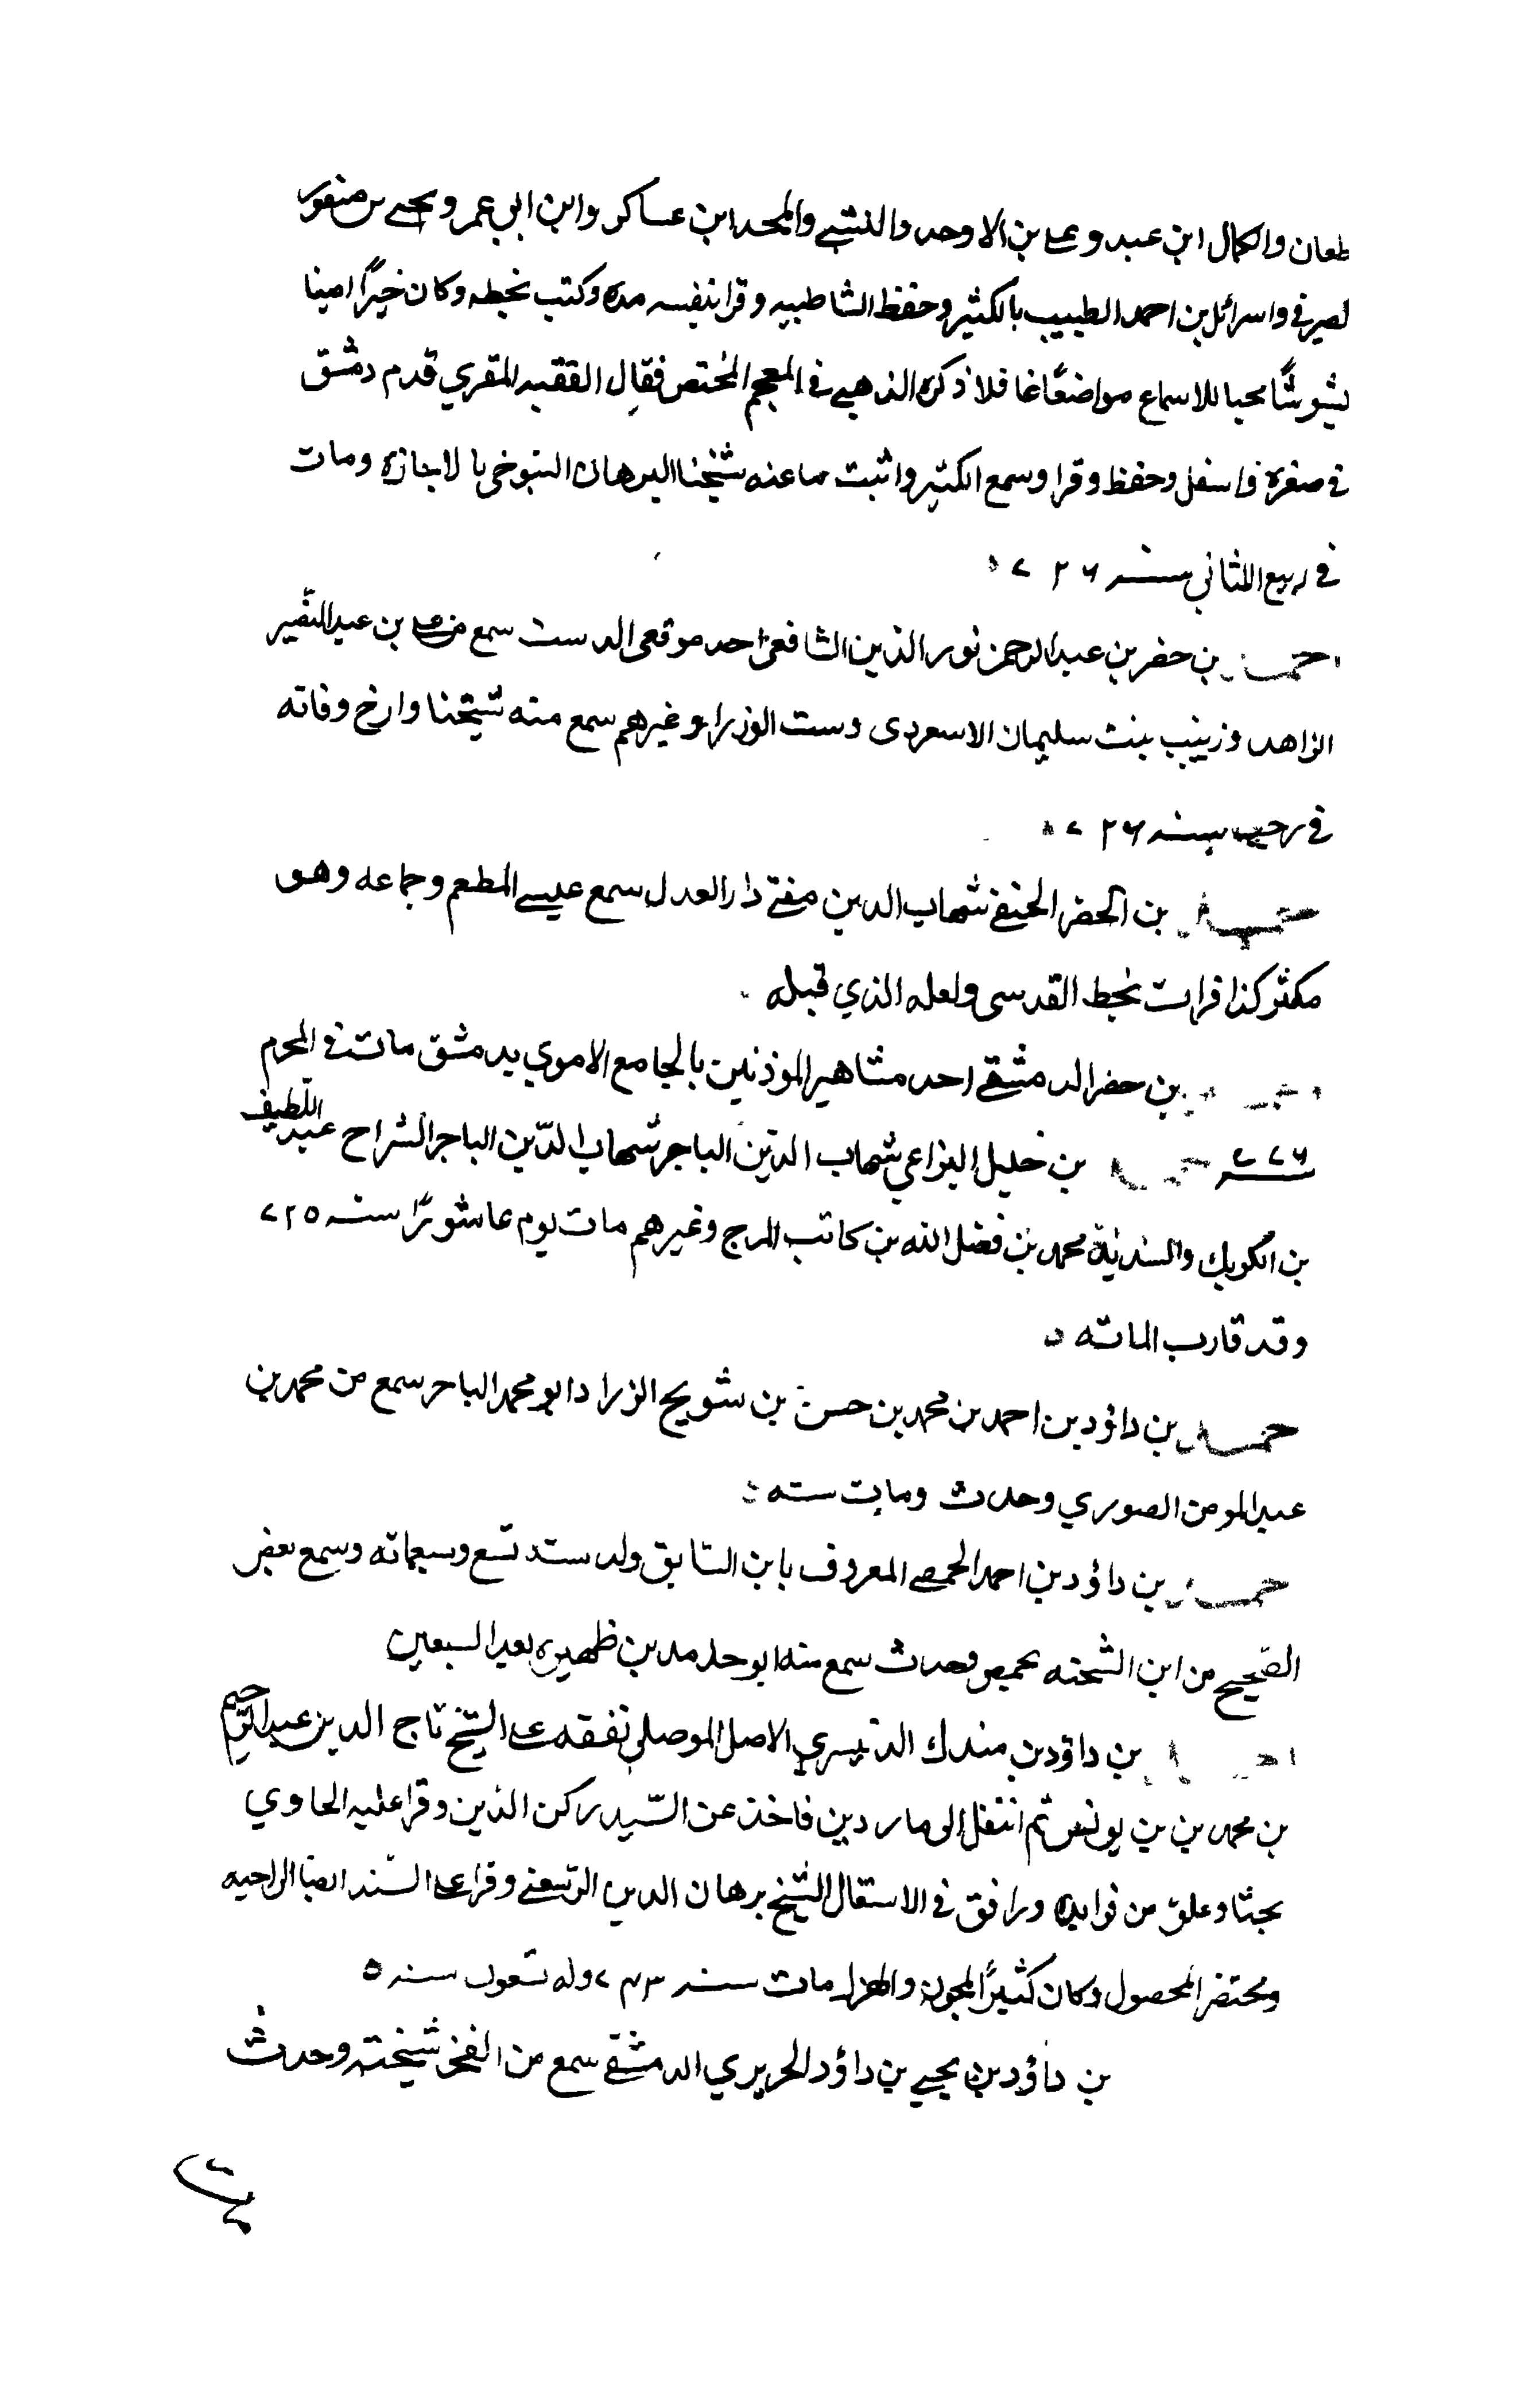 طعان والكمال ابن عبد وعلى بن الاوحد والنشبي والمجد ابن عساكر وابن ابي عمر ويحيى بن منصور
لصيرفي واسرائل بن احمد الطبيب بالكثير وحفظ الشاطبيه وقرا بنفسه مده وكتب بخطه وكان خيرًا امينا
بشوشًا محبا للاسماع مواضعًا غا فلا ذكره الذهبي في المعجم المختص فقال الفقيه المقري قدم دمشق
في صغره فاستغل وحفظ وقرا وسمع الكثير واثبت ماعنه شيخنا البرهان التنوخي بالاجازه ومات
في ربيع الثاني سنه ٧٢٦
احمد بن خضر بن عبد الرحمن نور الدين الشافعي احد موقعى الدست سمع من على بن عبد النصير
الزاهد وزينب بنت سليمان الاسعردى وست الوزرا وغيرهم سمع منه شيخنا وارخ وفاته
في رجب سنه ٧٢٦
احمد بن الخضر الحنفي شهاب الدين مفتي دار العدل سمع عيسى المطعم وجماعه وهو
مكثر كذا قرات بخط القدسى ولعله الذي قبله
بن خضر الدمشقي احد مشاهير الموذنين بالجامع الاموي بدمشق مات في المحرم
سنه ٧٧٦ بن خليل البزاعي شهاب الدين التاجر شهاب الدّين التاجر السراح عبد اللّطيف
بن الكويك والسديد محمد بن فضل الله بن كاتب المرج وغيرهم مات يوم عاشورًا سنه ٧٢٥
وقد قارب المائه
احمد بن داؤد بن احمد بن محمد بن حسن بن شويح الزراد ابو محمد التاجر سمع من محمد بن
عبد المومن الصوري وحدث ومات سنه
احمد بن داؤد بن احمد الحمصي المعروف بابن السّابق ولد سنه تسع وسبعمائه وسمع بعض
الصّحيح من ابن الشحنه بحمص وحدث سمع منه ابو حامد بن ظهيره بعد السبعين
احمد بن داؤد بن مندك الدنيسري الاصل الموصلي تفقه على الشيخ تاج الدين عبد الرحيم
بن محمد بن بن يونس ثم انتقل الى ماردين فاخذ عن السّيد ركن الدين وقرا عليه الحاوي
بحثا وعلق من فوايده ورافق في الاستغال الشيخ برهان الدين الرسعني وقرا على السّند ايضا الراجيه
ومختصر المحصول وكان كثيرًا المجون والهزل مات سنه ٧٤٣ وله تسعون سنه
بن داؤد بن يحيى بن داؤد الحريري الدمشقي سمع من الفخر شيخته وحدث